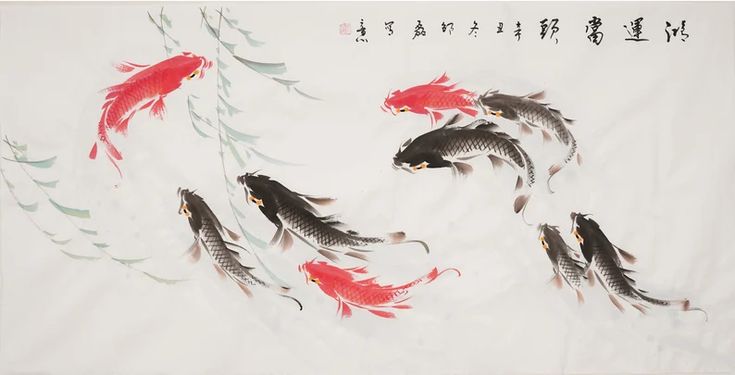 鴻運當頭 辛丑冬 寫意